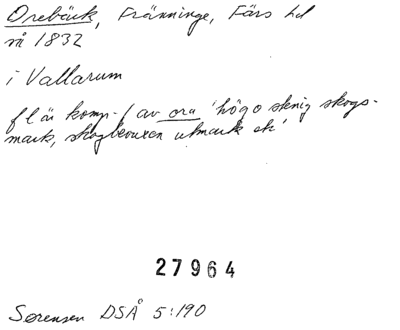 Orebäck, Fränninge, Färs hd
vå 1832
i Vallarum
f l är komp.-f av ora 'högo stenig skogs-
mark, skogbevuxen utmark etc'
27964
Sørensen DSÅ 5:190